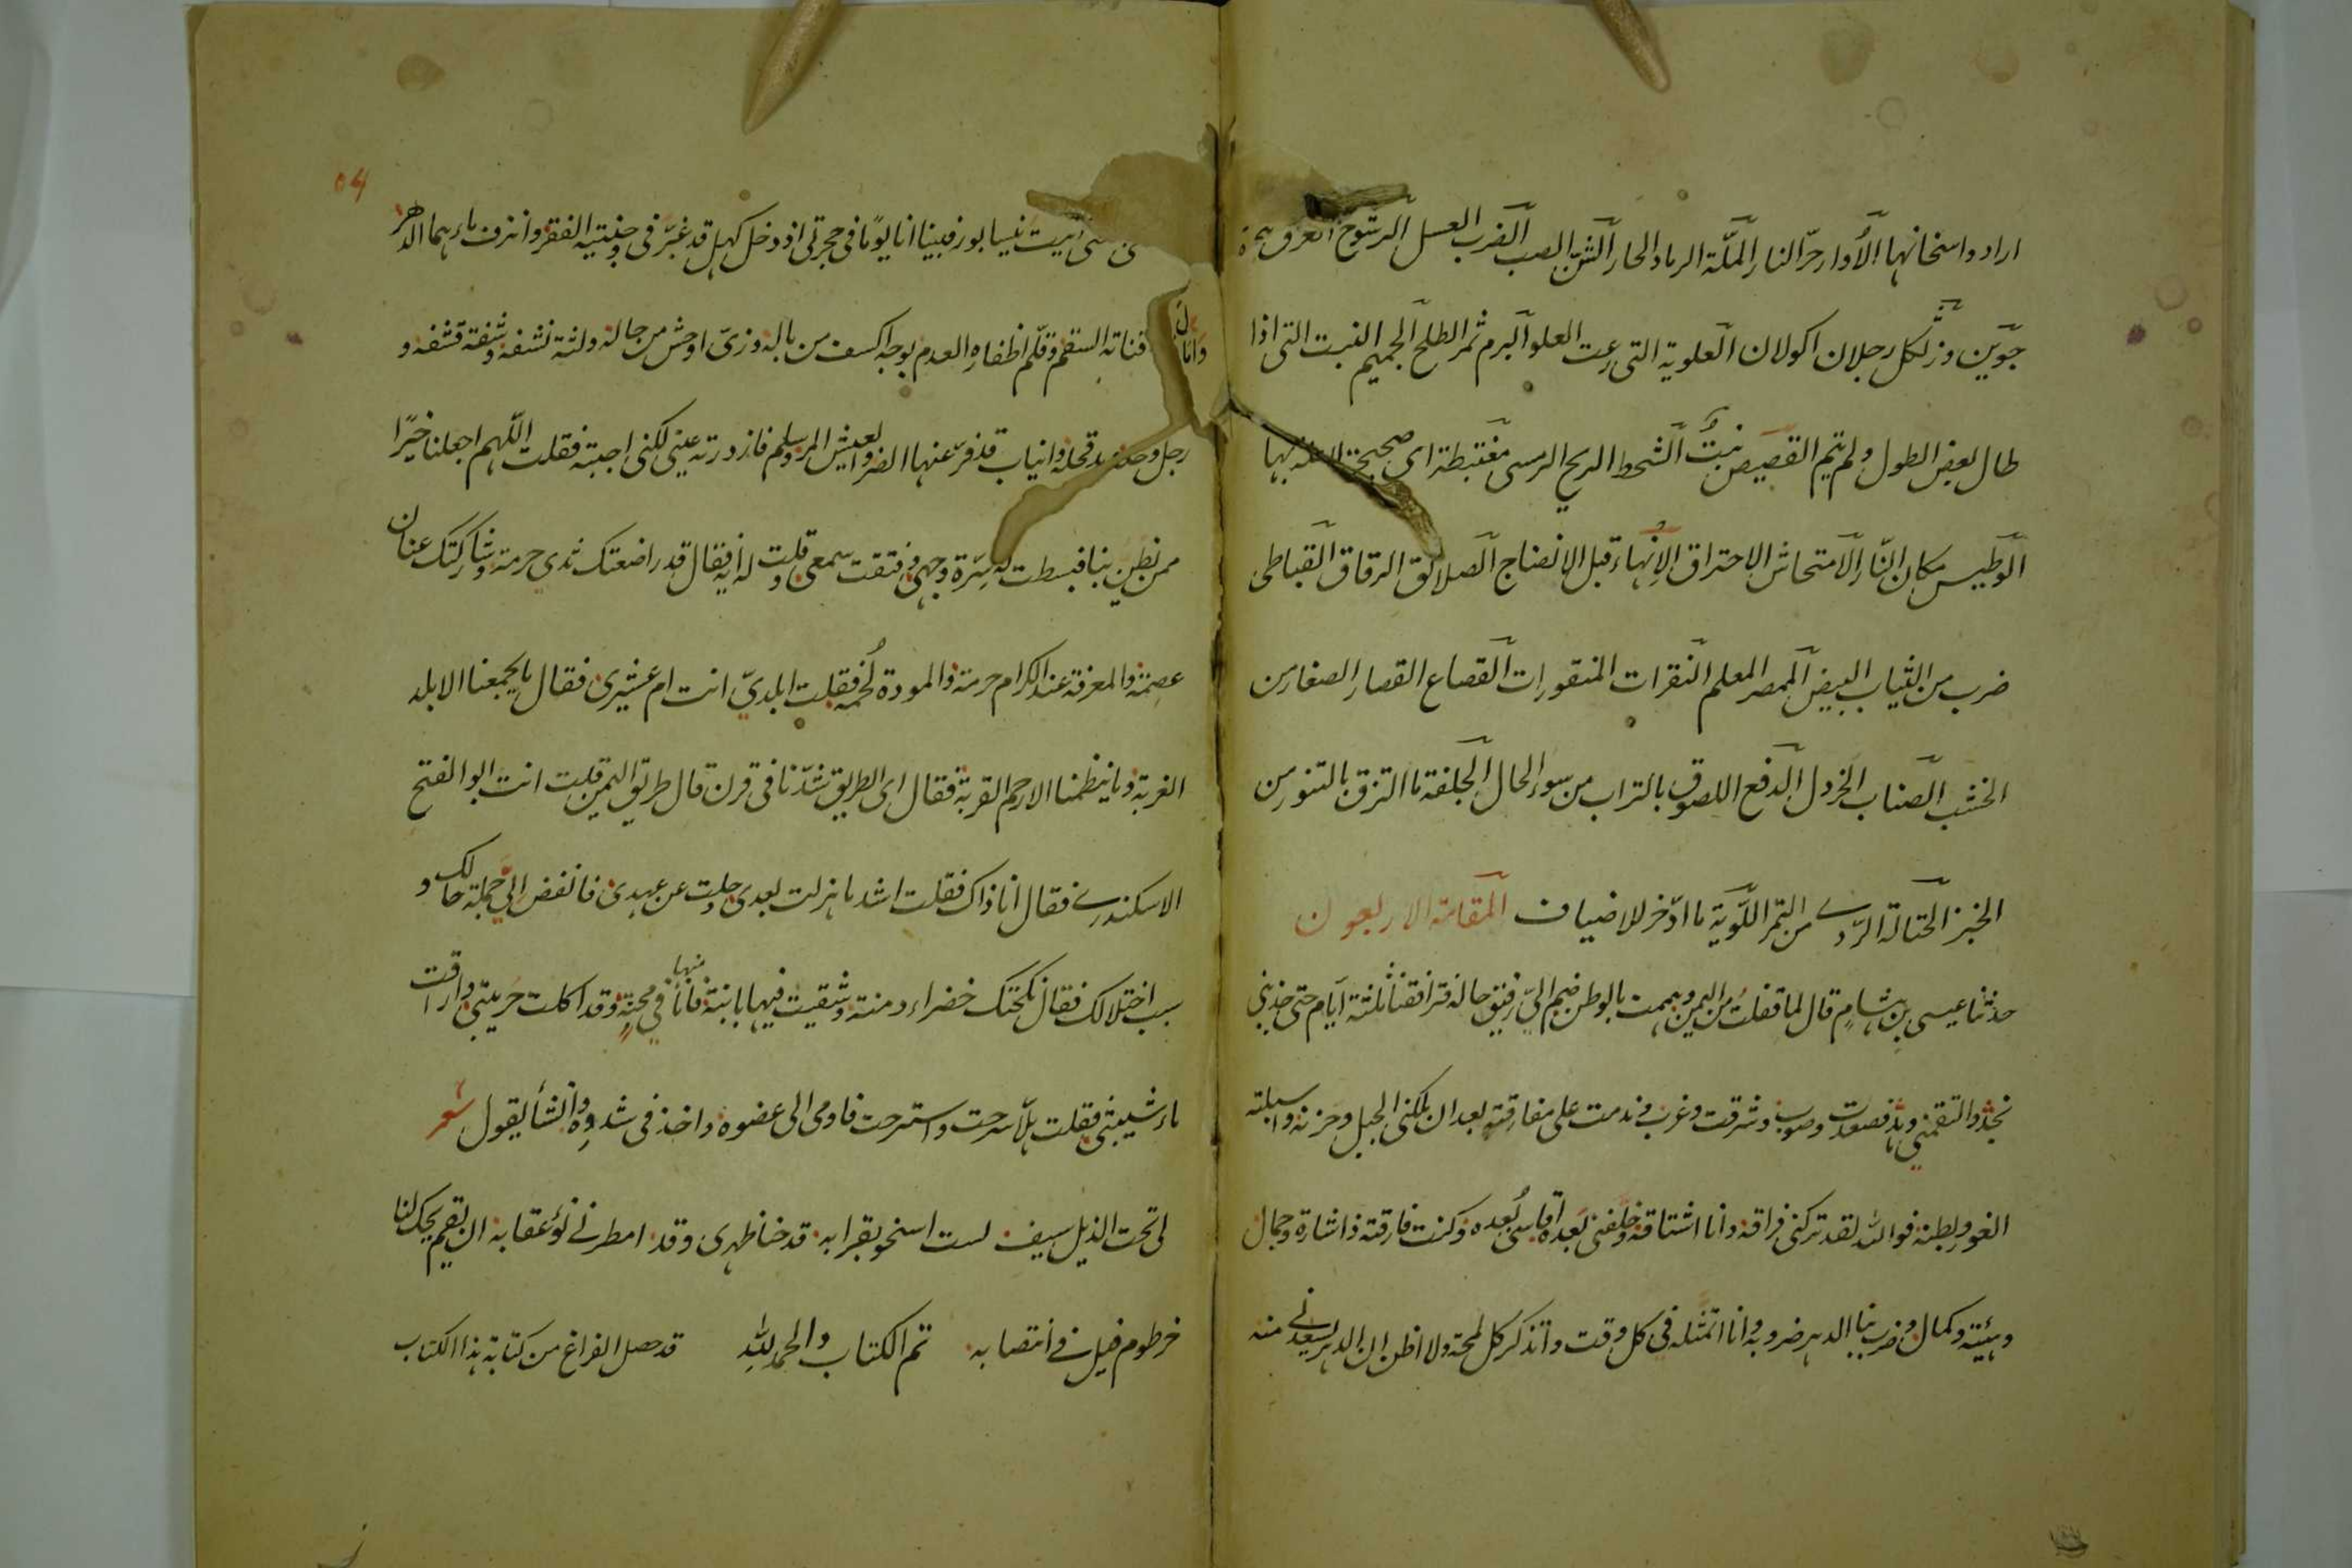 اراد واسخانها الأوار حرّ النار الملّة الرماد الحار الشنّ الصب الضرب العسل الرشوح العرق
جوّين وزّ لكل رجلان اكولان العلوية التى رعت العلو البرم ثمر الطلح الجميم النبت التى اذا
طال بعض الطول ولم يتم القصيص نبتٌ الشحط الريح الرمسى مغتبطة اى صحيحة بها
الوطيس مكان النّار الامتحاش الاحتراق الانهاء قبل الانضاج الصلائق الرقاق القباطى
ضرب من الثياب البيض الممصر المعلم النقرات المنقورات القصاع القصار الصغار من
الخشب الصناب الخردل الدقع اللصوق بالتراب من سوء الحال الجلفة ما التزق بالتنور من
الخبز الحثالة الردى من التمر اللويّة ما ادّخر للاضياف المقامة الاربعون
حدثنا عيسى بن هشامٍ قال لما قفلتُ من اليمن وهممت بالوطن ضم الىّ رفيق رحاله فترافقنا ثلثة ايّام حتى جذبنى
نجدٌ والتقمه وهدٌ فصعدت وصوب وشرقت وغرب وندمت على مفارقته بعد ان ملكنى الجبل وحزنه واسبلته
الغور وبطنه فوالله لقد تركنى فراقه وانا اشتاقه وخلّفنى بَعده اقاسى بُعده وكنت فارقته ذا شارة وجمال
وهيئة وكمال وضرب بنا الدهر ضروبه وانا اتمثله فى كل وقت واتذكر كل لمحة ولا اظن ان الدهر يسعدنى منه
اتيت نيسابور فبينا انا يومًا فى حجرتى اذ دخل كهل قد غبّر فى وجنتيه الفقر وانزف ماءهما الدهر
وامال قناته السقم وقلّم اظفاره العدم بوجه اكسف من باله وزىّ اوحش من حاله ولثة نشفة وشفة قشفة و
رجل وحلة ويد قحلة وانياب قد فرّ عنها الضر والعيش المر وسلم فازدرته عينى لكنى اجبته فقلت اللّهم اجعلنا خيرًا
ممن نظن بنا فبسطت له اسرّة وجهى وفتقت سمعى وقلت له ايه فقال قد راضعتك ثدى حرمة وشاركتك عنان
عصمة والمعرفة عند الكرام حرمة والمودة لُحمة فقلت ابلدىّ انت ام عشيرى فقال ما يجمعنا الا بلد
الغربة وما ينظمنا الا رحم القربة فقال اى الطريق شدّنا فى قرن قال طريق اليمن قلت انت ابو الفتح
الاسكندرى فقال انا ذاك فقلت اشد ما هزلت بعدى وحلت عن عهدى فانفض الىّ جملة حالك و
سبب اختلالك فقال نكحتك خضراء دمنة وشقيت فيها بابنة فانا منها فى محنةٍ وقد اكلت حريبتى واراقت
ماء شيبتى فقلت هلّا سرحت واسترحت فاومى الى عضوه واخذ فى شدوه وانشأ يقول شعر
لى تحت الذيل سيف لست اسخو بقرابه قد حنا ظهرى وقد امطرنى نوء عقابه ان يقم يحك لنا
خرطوم فيل فى انتصابه تم الكتاب والحمد لله قد حصل الفراغ من كتابة هذا الكتاب